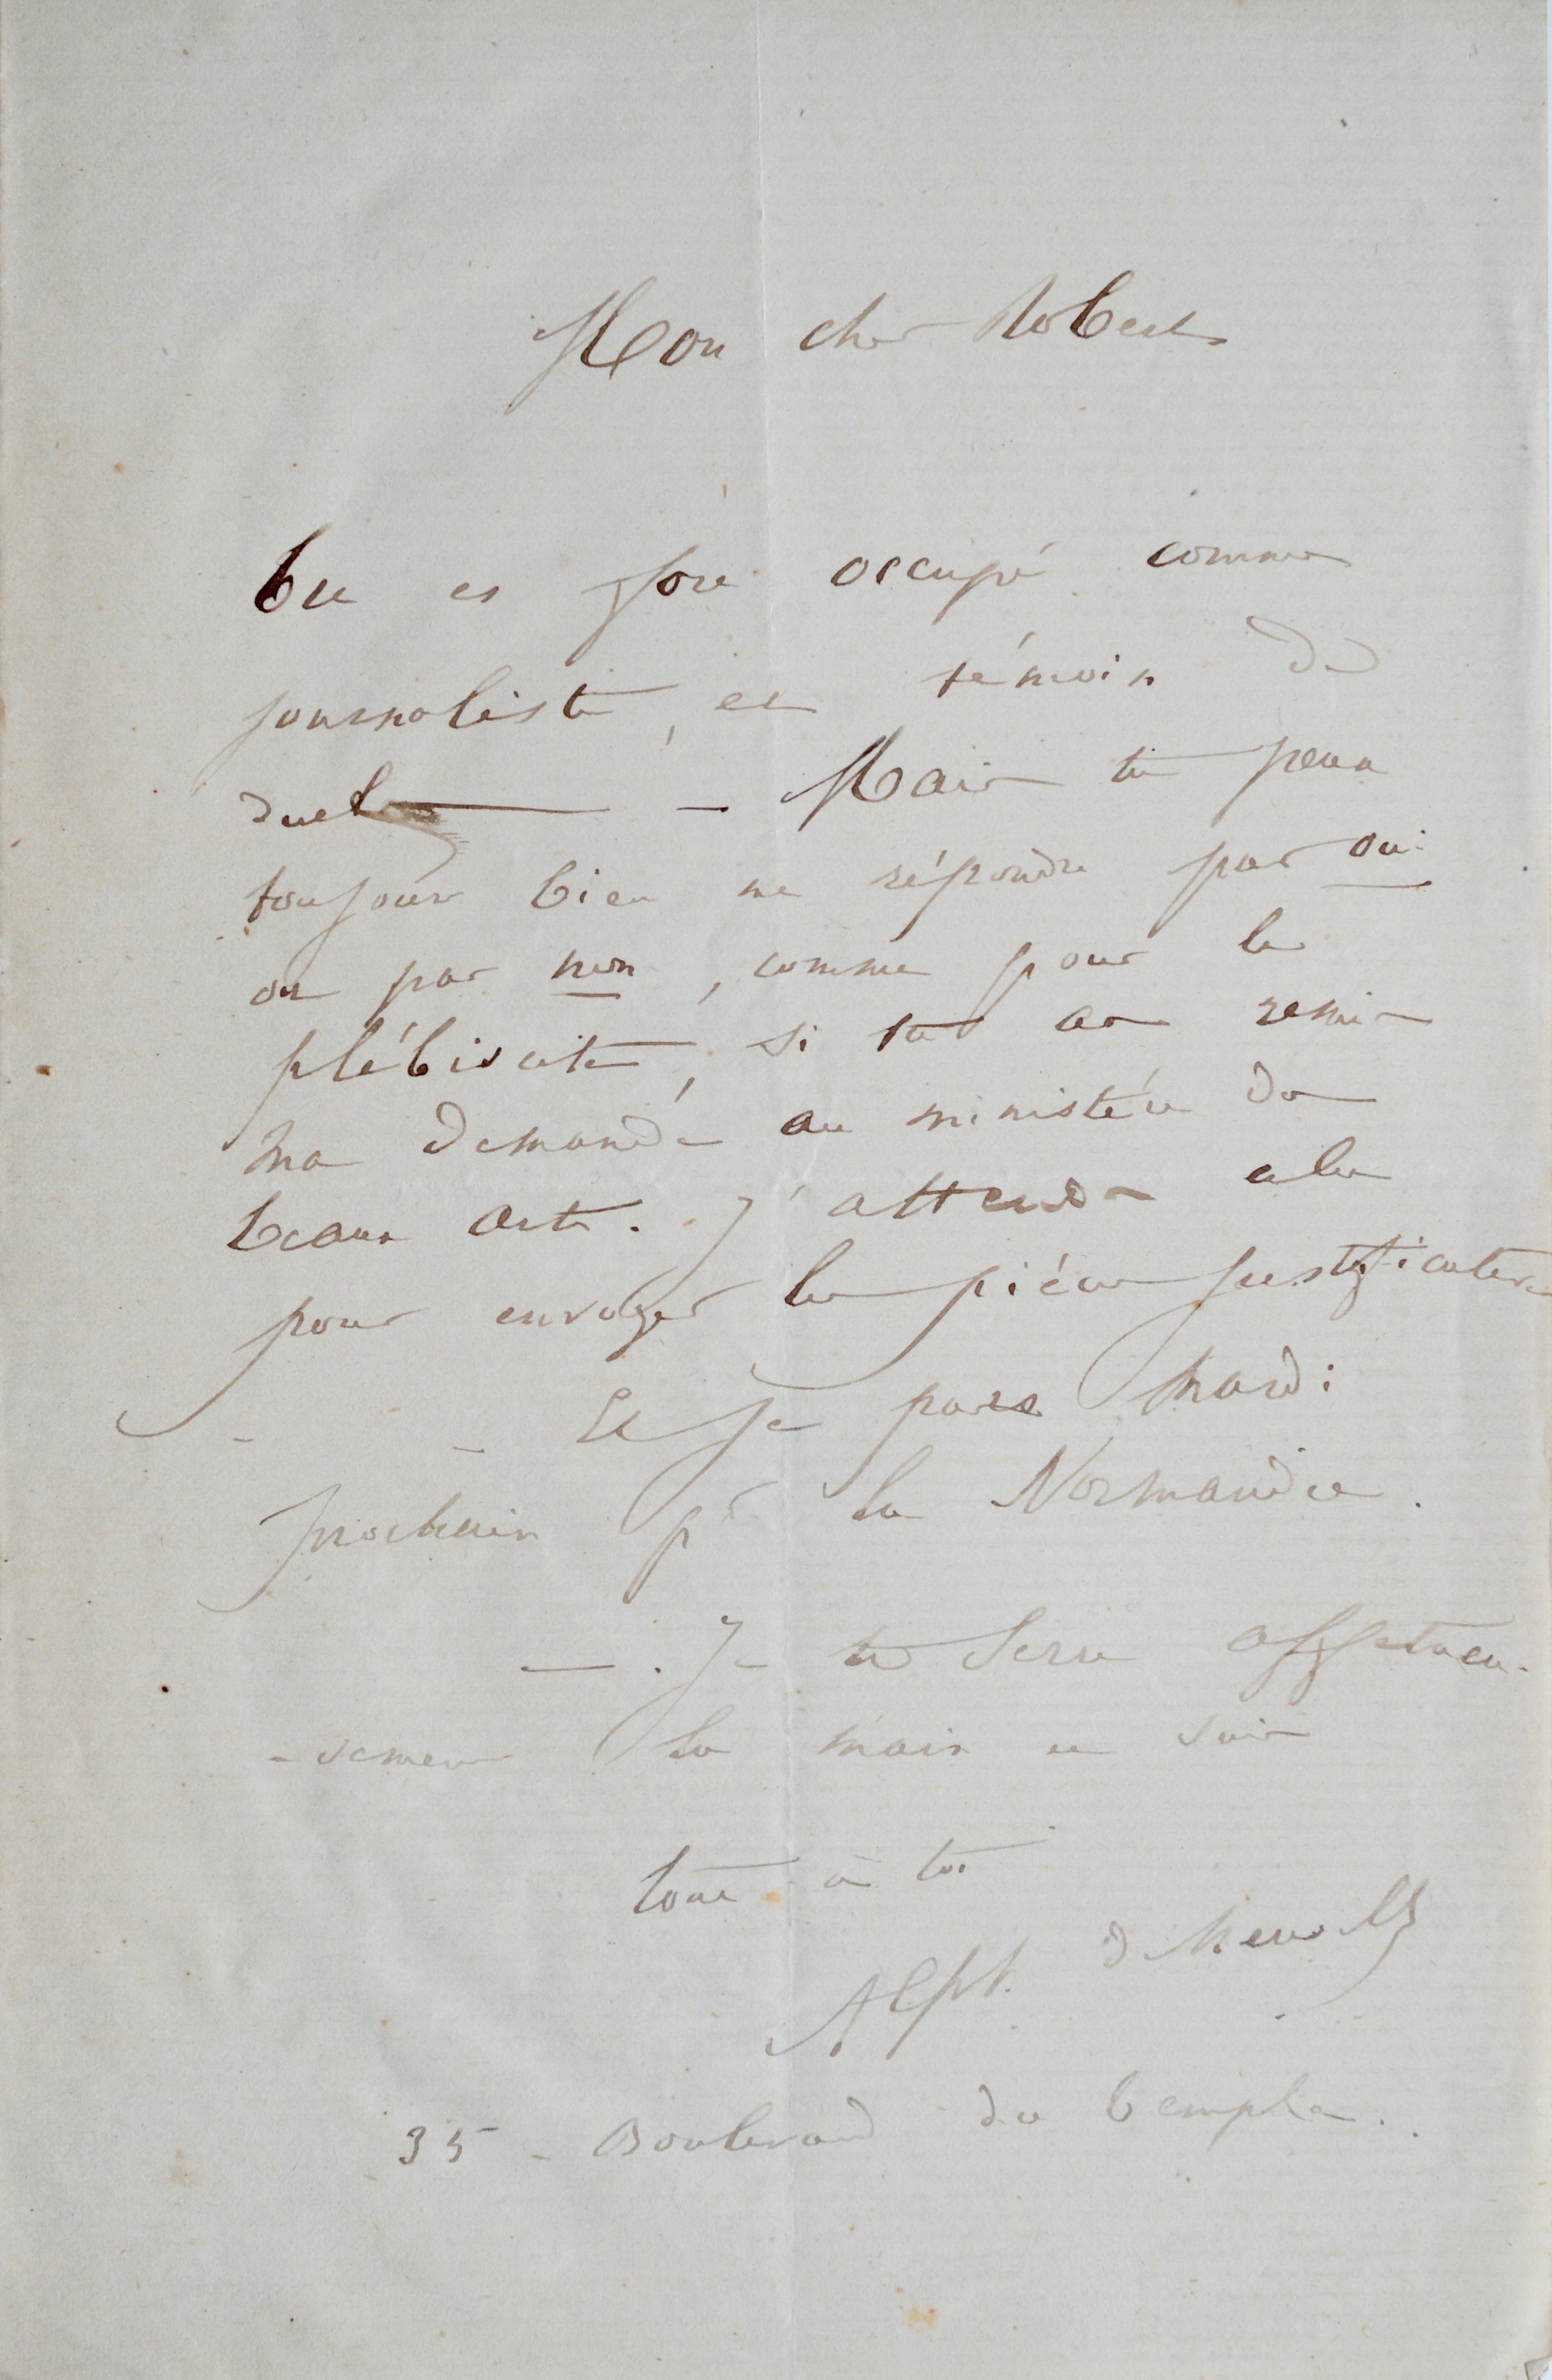 Mon cher Robert
tu es fort occupé comme
journaliste, et témoin de
duel — Mais tu peux
toujours bien me répondre par oui
ou par non, comme pour le
plébiscite, si tu as remis
ma demande au ministère des
beaux arts. J'attends cela
pour envoyer les pièces justificatives
- - Et je pars mardi
prochain pr la Normandie.
— . Je te serre affectueu-
-sement la main et suis
tout à toi
Alph. de
35 - Boulevard du temple.